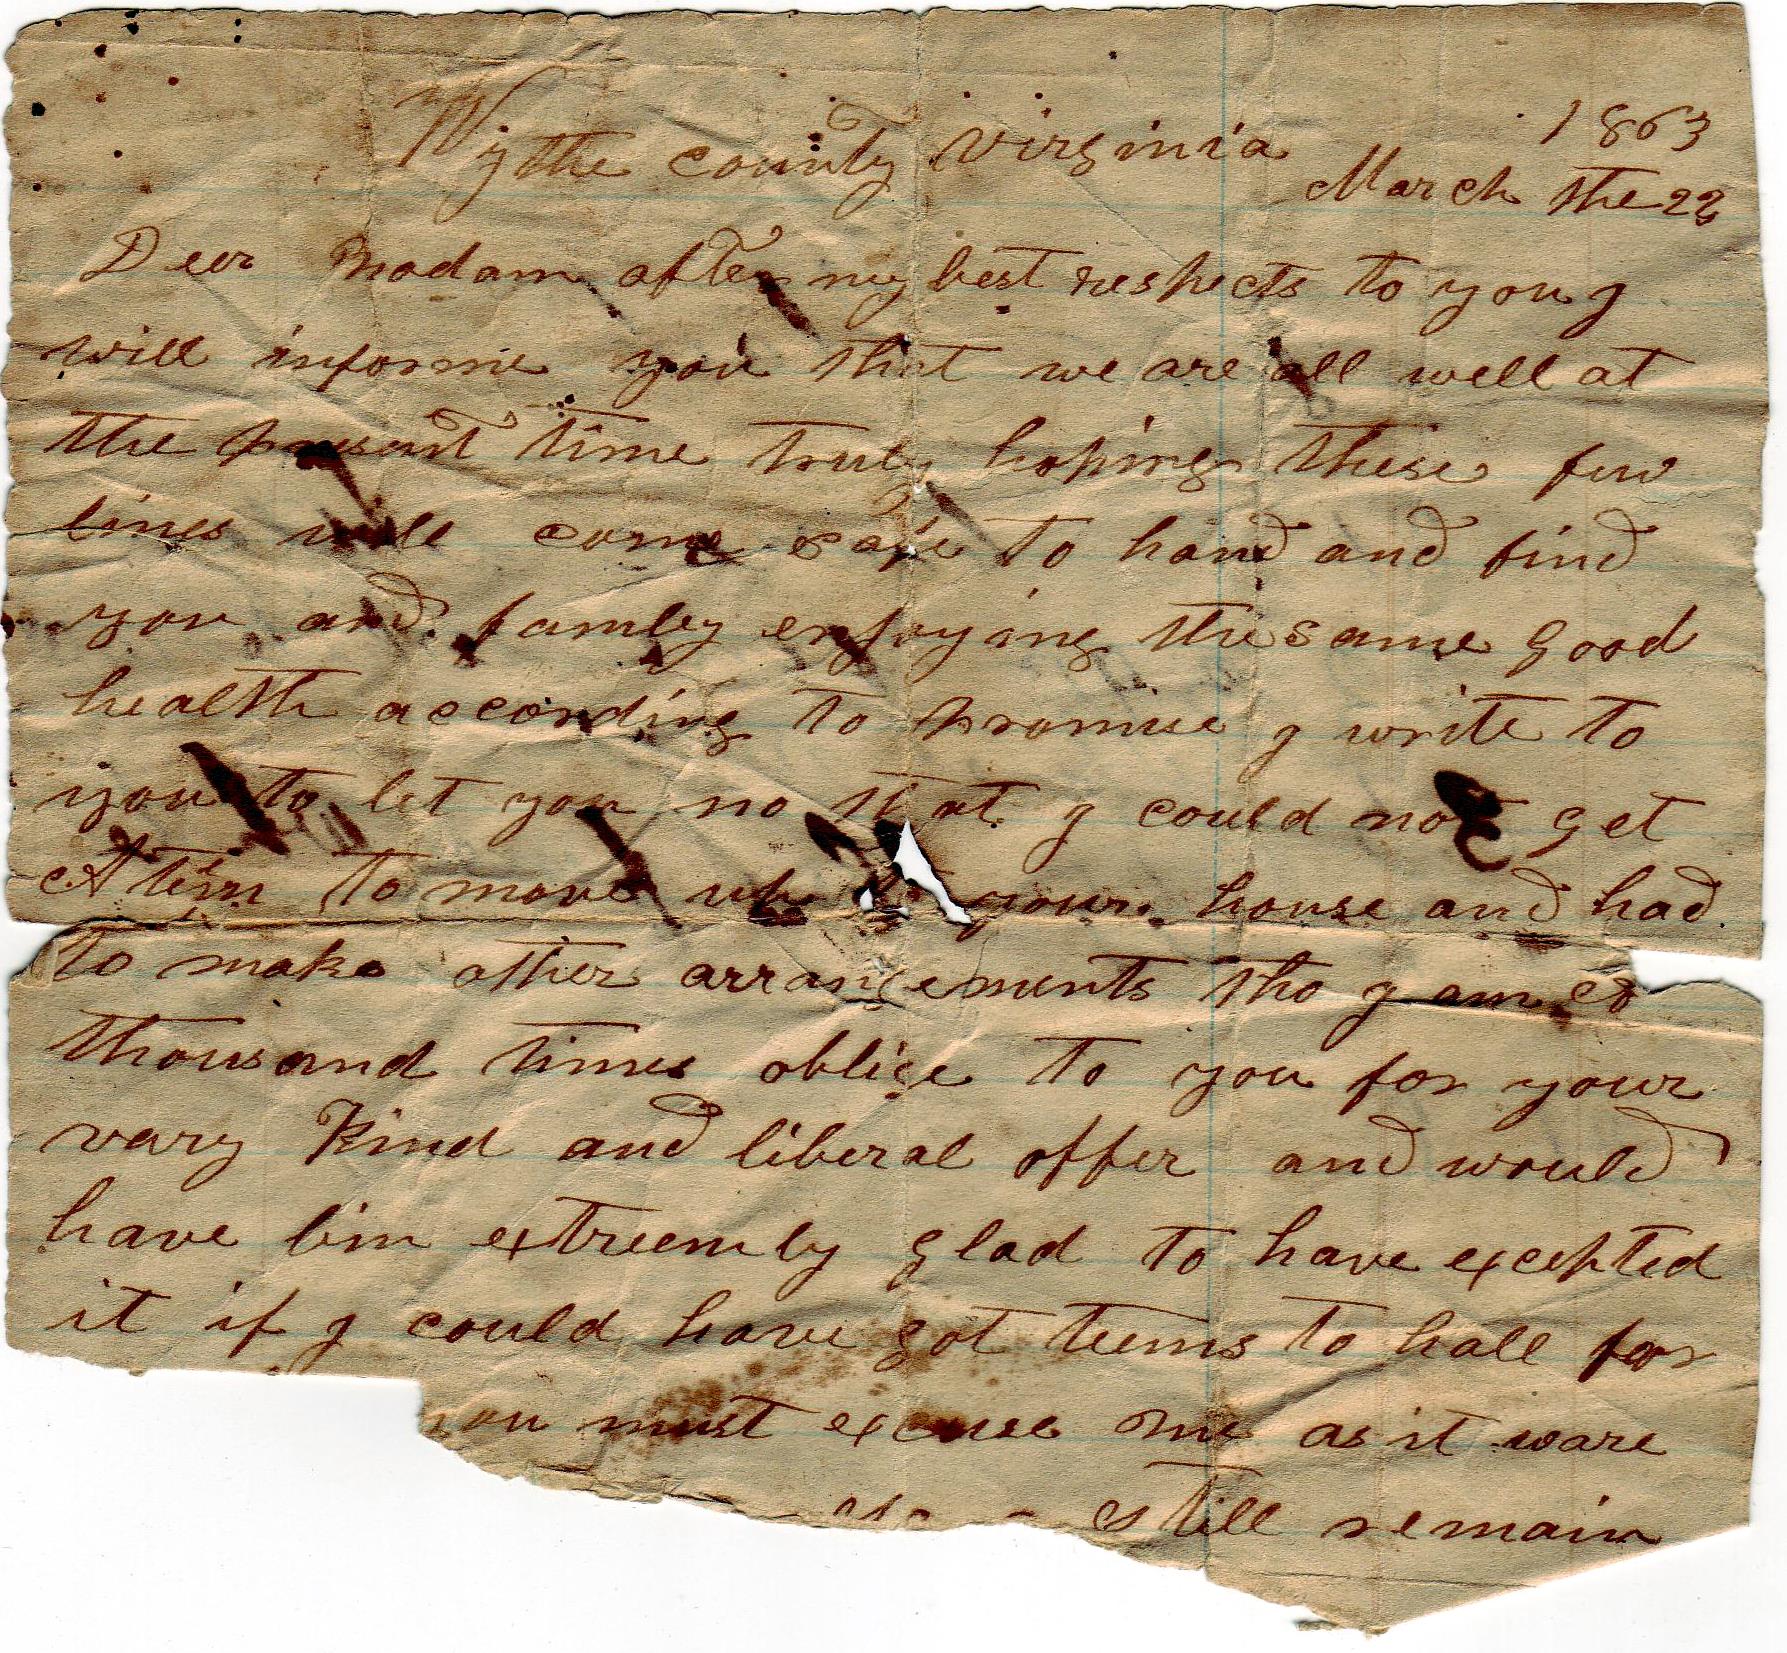 Wythe county Virginia 1863
March the 22
Dear Madam after my best respects to you J
will informe you that we are all well at
the present time truly hoping these few
lines will come safe to hand and find
you and family enjoying the same good
health according to promise J write to
you to let you no that J could not get
A tem to move up to your house and had
to make other arrangements tho J am a
thousand times oblige to you for your
vary Kind and liberal offer and would
have bin extreemly glad to have excepted
it if J could have got teems to hall for
you must excuse me as it ware
still remain